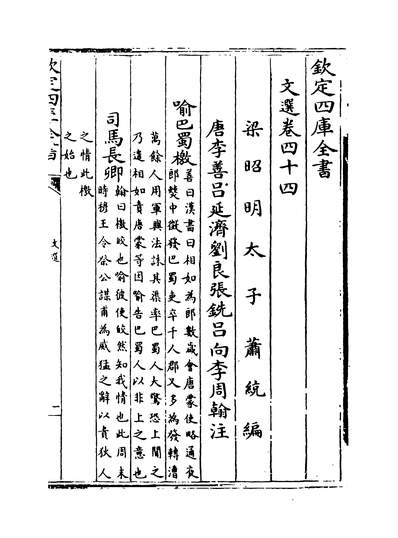 欽定四庫全書
文選卷四十四
梁昭明太子蕭統編
唐李善呂延濟劉良張銑呂向李周翰注
喻巴蜀檄善曰漢書曰相如為郎數歲會唐蒙使略通夜
郎僰中徵發巴蜀吏卒千人郡又多為發轉漕
萬餘人用軍興法誅其渠率巴蜀人大驚恐上聞之
乃遣相如責唐蒙等因喻告巴蜀人以非上之意也
司馬長卿翰曰檄皎也喻彼使皎然知我情也此周末
時穆王令祭公謀甫為威猛之辭以責狄人
之情此檄
之始也
欽定四庫全書
文選
一